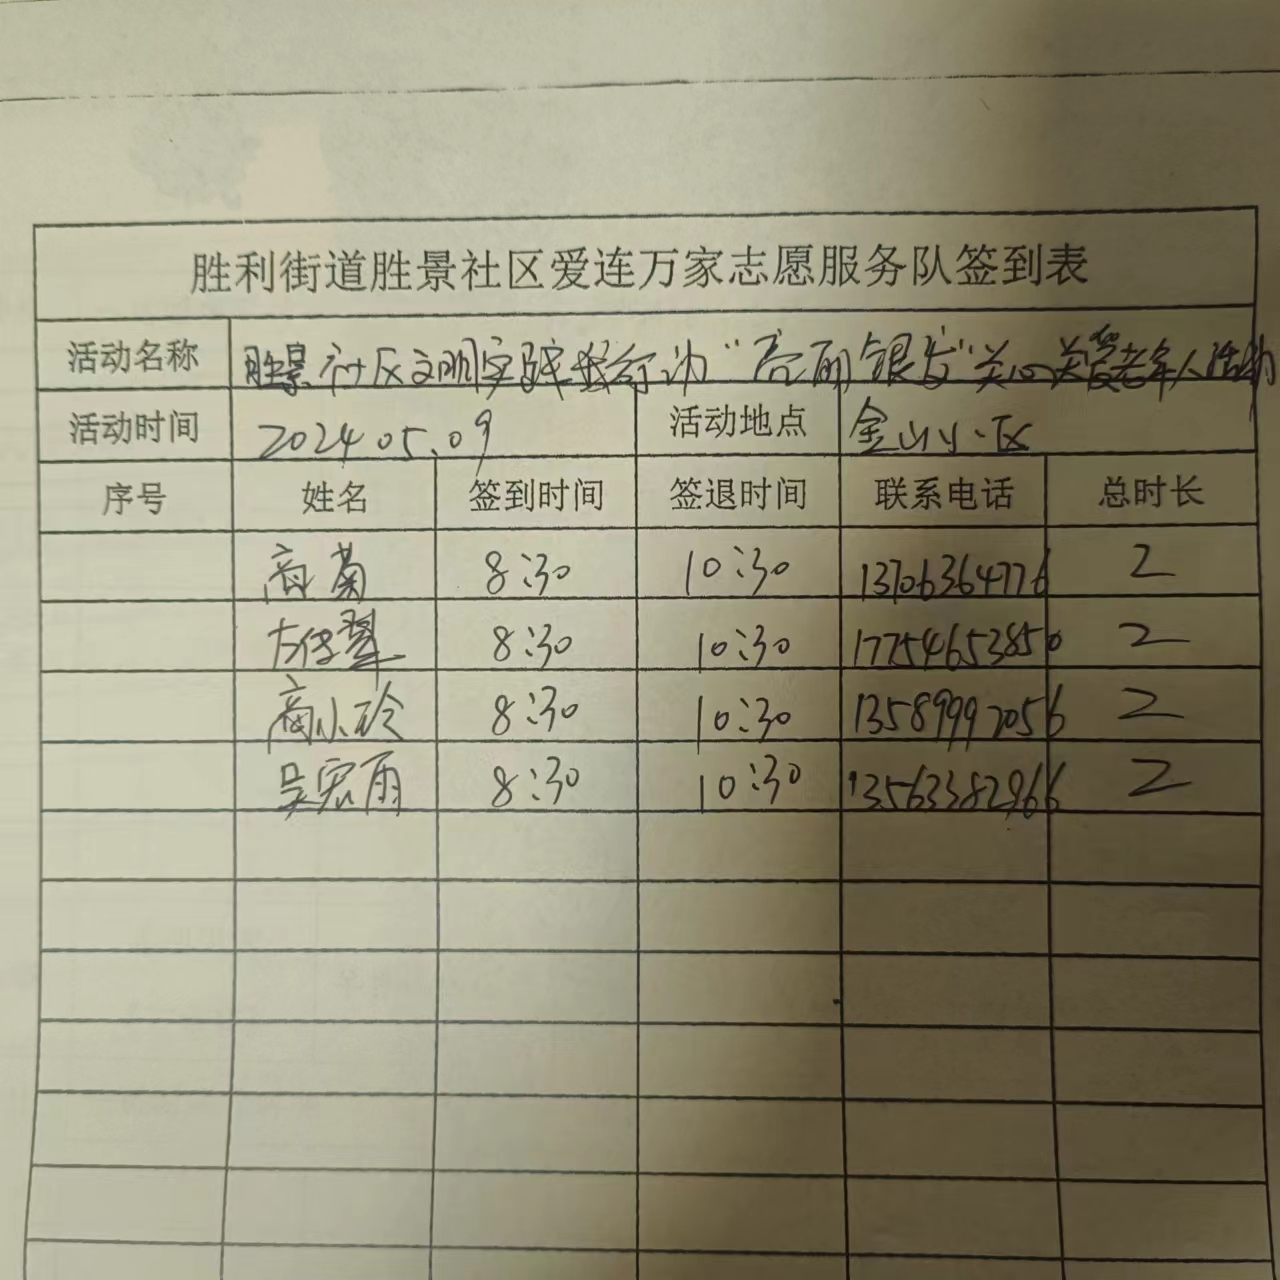 胜利街道胜景社区爱连万家志愿服务队签到表
活动名称 胜景社区文明实践我行动“亮丽银发”关心关爱老年人活动
活动时间 2024 05.09 活动地点 金山小区
序号 姓名 签到时间 签退时间 联系电话 总时长
高菊 8:30 10:30 13706364776 2
8:30 10:30 17754653850 2
高小玲 8:30 10:30 13589997056 2
吴宏雨 8:30 10:30 13563382966 2